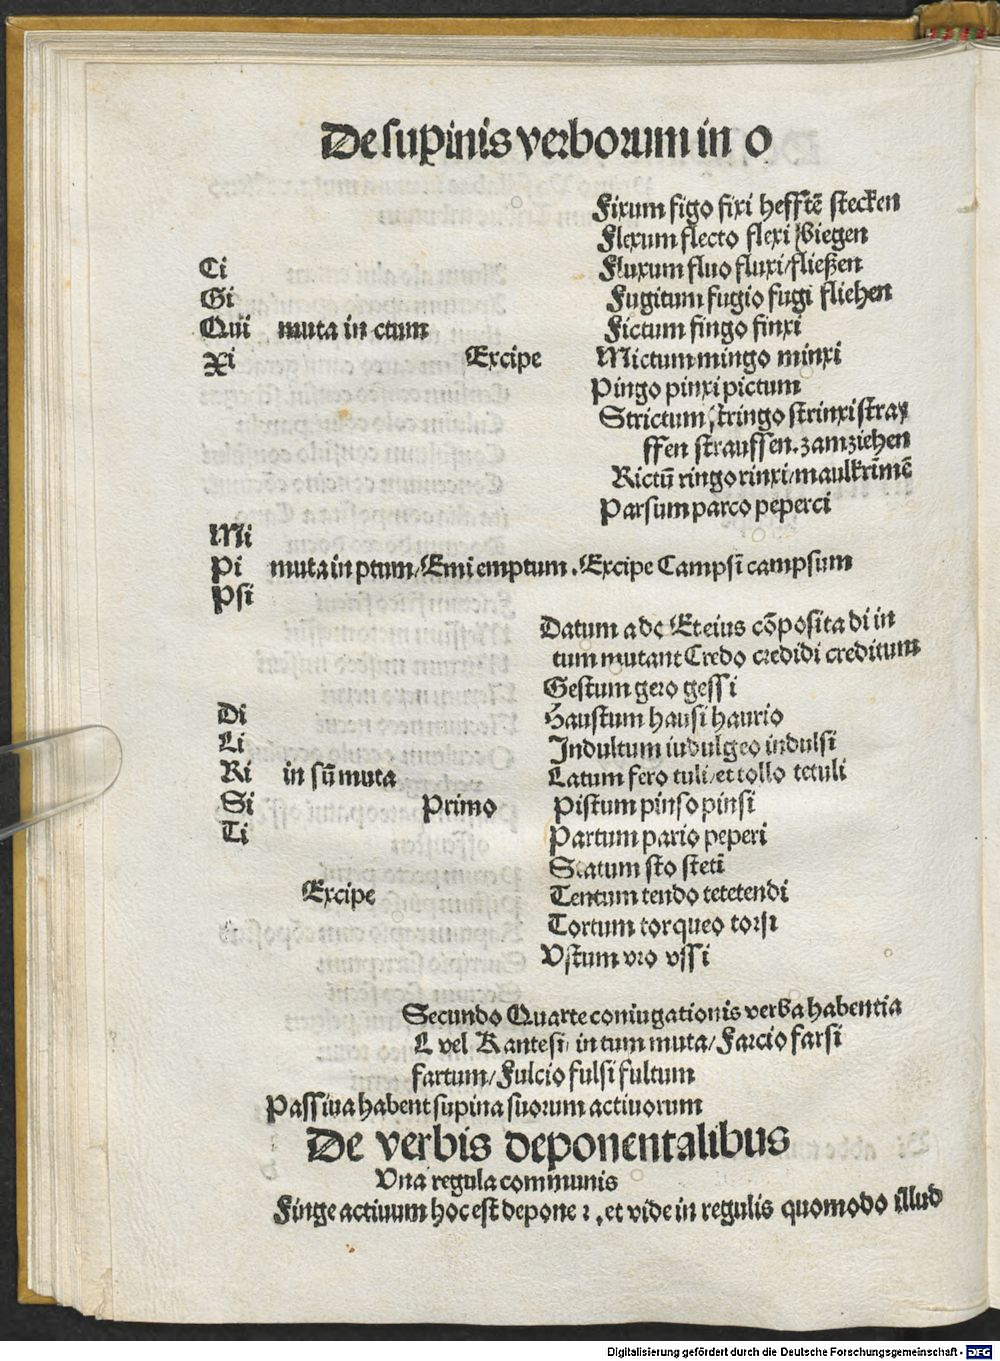 De supinis verborum in o
Fixum figo fixi hefftē stecken
Flexum flecto flexi Biegen
Ci
Fluxum fluo fluxi/fließen
Gi
Fugitum fugio fugi fliehen
Qui muta in ctum
Fictum fingo finxi
Xi
Excipe Mictum mingo minxi
Pingo pinxi pictum
Strictum stringo strinxi stray
ffen strauffen.zamziehen
Rictū ringo rinxi/maulkrīmē
Parsum parco peperci
Mi
Pi muta in ptum/Emi emptum.Excipe Campsi campsum
Psi
Datum a do Et eius cōposita di in
tum mutant Credo credidi creditum
Gestum gero gessi
Di
Haustum hausi haurio
Li
Indultum iudulgeo indulsi
Ri in sū muta
Latum fero tuli/et tollo tetuli
Si
Primo Pistum pinso pinsi
Ti
Partum pario peperi
Statum sto steti
Excipe Tentum tendo tetetendi
Tortum torqueo torsi
Vstum vro vssi
Secundo Quarte coniugationis verba habentia
L vel R ante si in tum muta/Farcio farsi
fartum/Fulcio fulsi fultum
Passiua habent supina suorum actiuorum
De verbis deponentalibus
Vna regula communis
Finge actiuum hoc est depone r.et vide in regulis quomodo illud
Digitalisierung gefördert durch die Deutsche Forschungsgemeinschaft - DFG